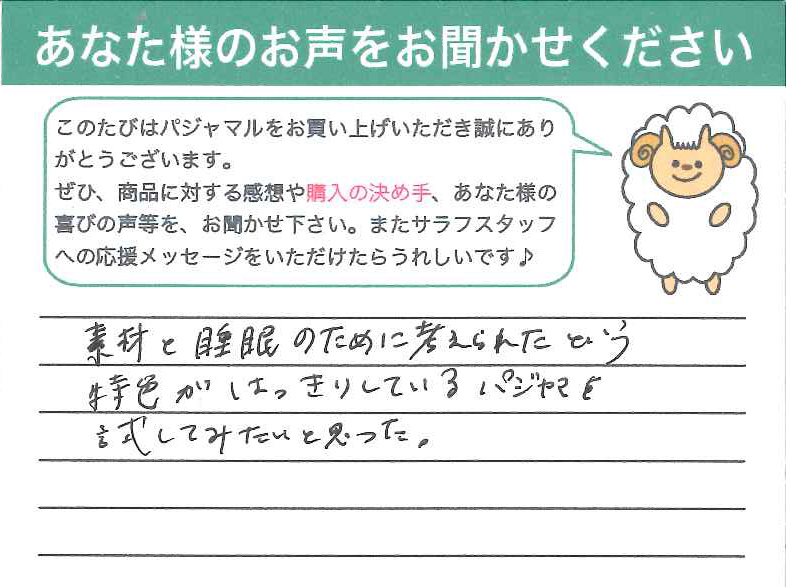 あなた様のお声をお聞かせください
このたびはパジャマルをお買い上げいただき誠にあり
がとうございます。
ぜひ、商品に対する感想や購入の決め手、あなた様の
喜びの声等を、お聞かせ下さい。またサラフスタッフ
への応援メッセージをいただけたらうれしいです♪
素材と睡眠のために考えられたという
特色がはっきりしているパジャマを
試してみたいと思った。